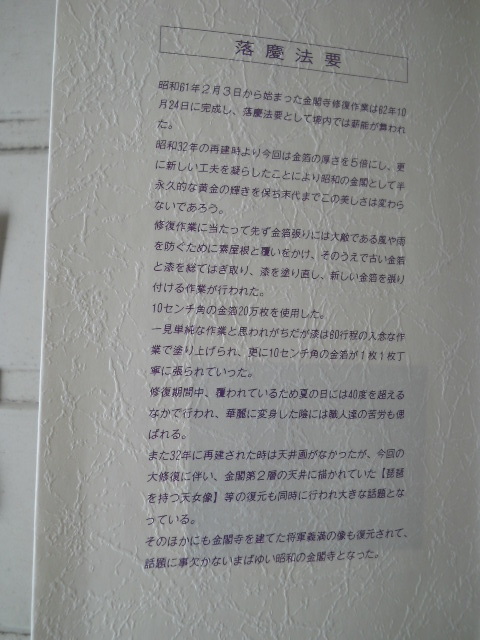 落慶法要
昭和61年2月3日から始まった金閣寺修復作業は62年10
月24日に完成し、落慶法要として境内では薪能が舞われ
た。
昭和32年の再建時より今回は金箔の厚さを5倍にし、更
に新しい工夫を凝らしたことにより昭和の金閣として半
永久的な黄金の輝きを保ち末代までこの美しさは変わら
ないであろう。
修復作業に当たって先ず金箔張りには大敵である風や雨
を防ぐために素屋根と覆いをかけ、そのうえで古い金箔
と漆を総てはぎ取り、漆を塗り直し、新しい金箔を張り
付ける作業が行われた。
10センチ角の金箔20万枚を使用した。
一見単純な作業と思われがちだが漆は60行程の入念な作
業で塗り上げられ、更に10センチ角の金箔が1枚1枚丁
寧に張られていった。
修復期間中、覆われているため夏の日には40度を超える
なかで行われ、華麗に変身した陰には職人達の苦労も偲
ばれる。
また32年に再建された時は天井画がなかったが、今回の
大修復に伴い、金閣第2層の天井に描かれていた【琵琶
を持つ天女像】等の復元も同時に行われ大きな話題とな
っている。
そのほかにも金閣寺を建てた将軍義満の像も復元されて、
話題に事欠かないまばゆい昭和の金閣寺となった。